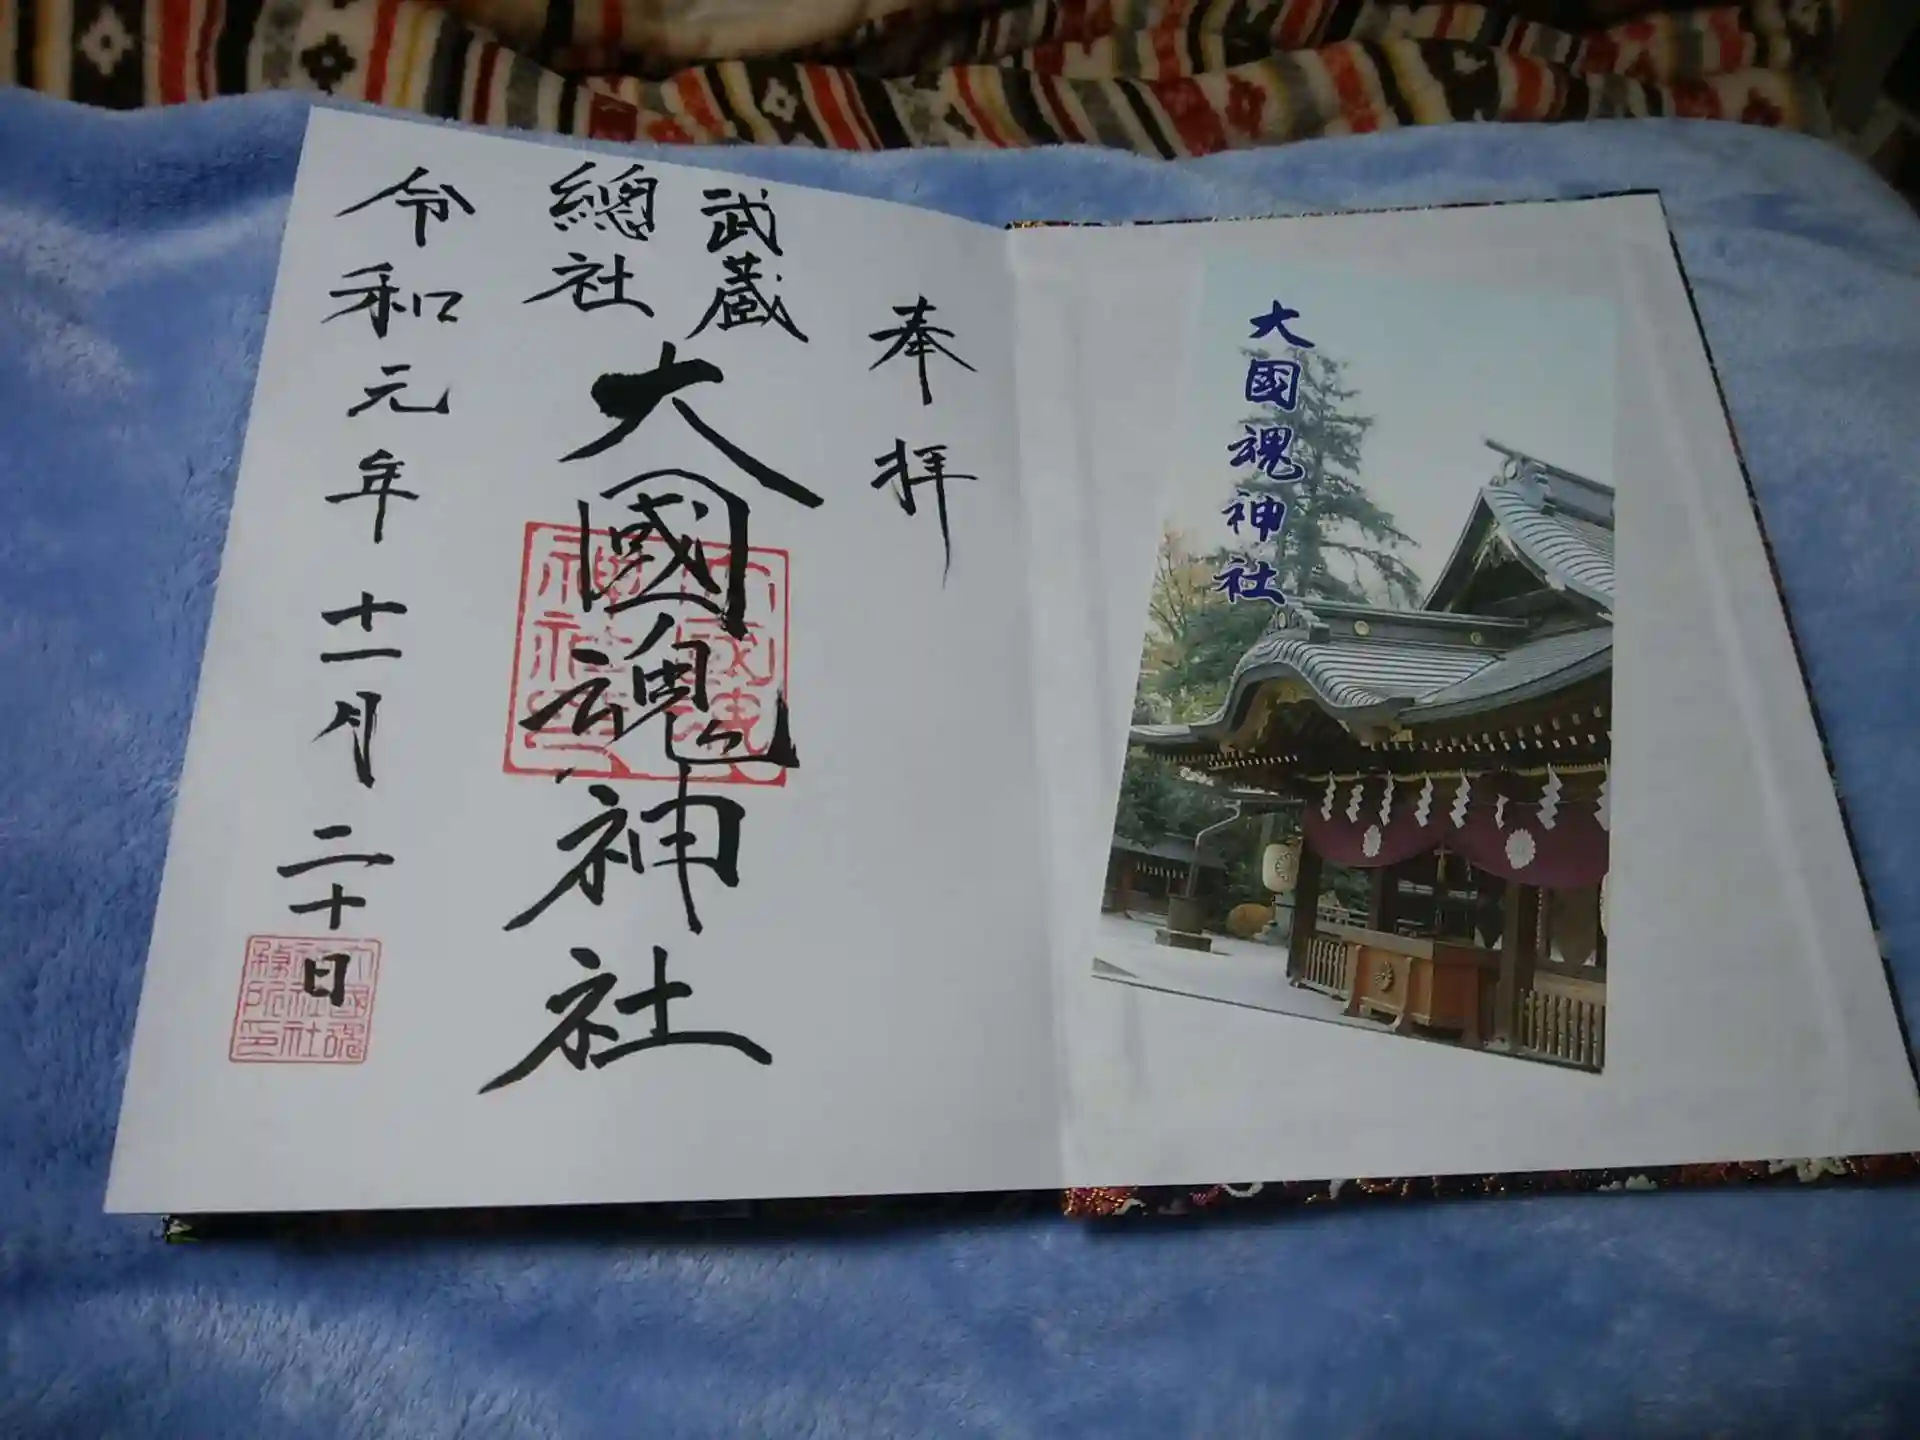 大國魂神社
奉拝
武蔵
總社
大國魂神社
令和元年十一月二十日
大國魂
神社印
大國魂
神社社
務所印